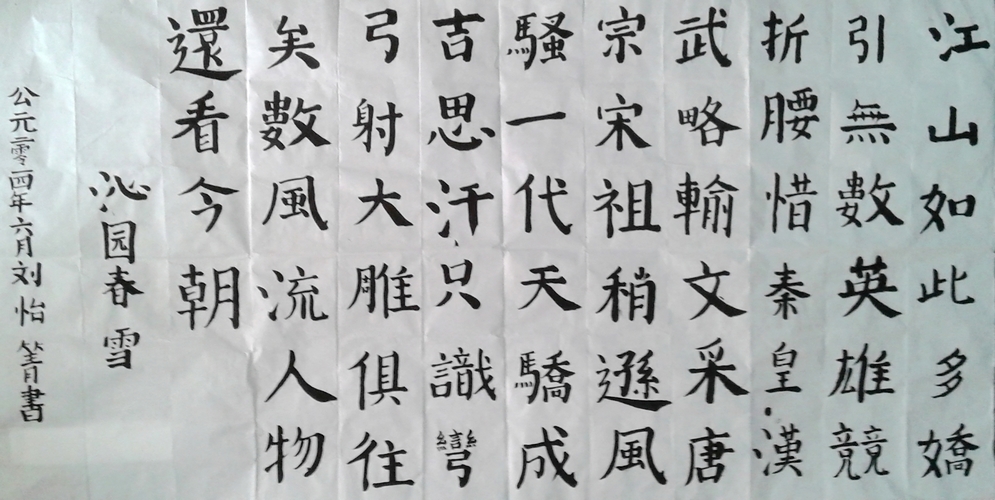 江山如此多嬌
引無數英雄競
折腰惜秦皇漢
武略輸文采唐
宗宋祖稍遜風
騷一代天驕成
吉思汗只識彎
弓射大雕俱往
矣數風流人物
還看今朝
沁园春雪
公元零四年六月刘怡箐書